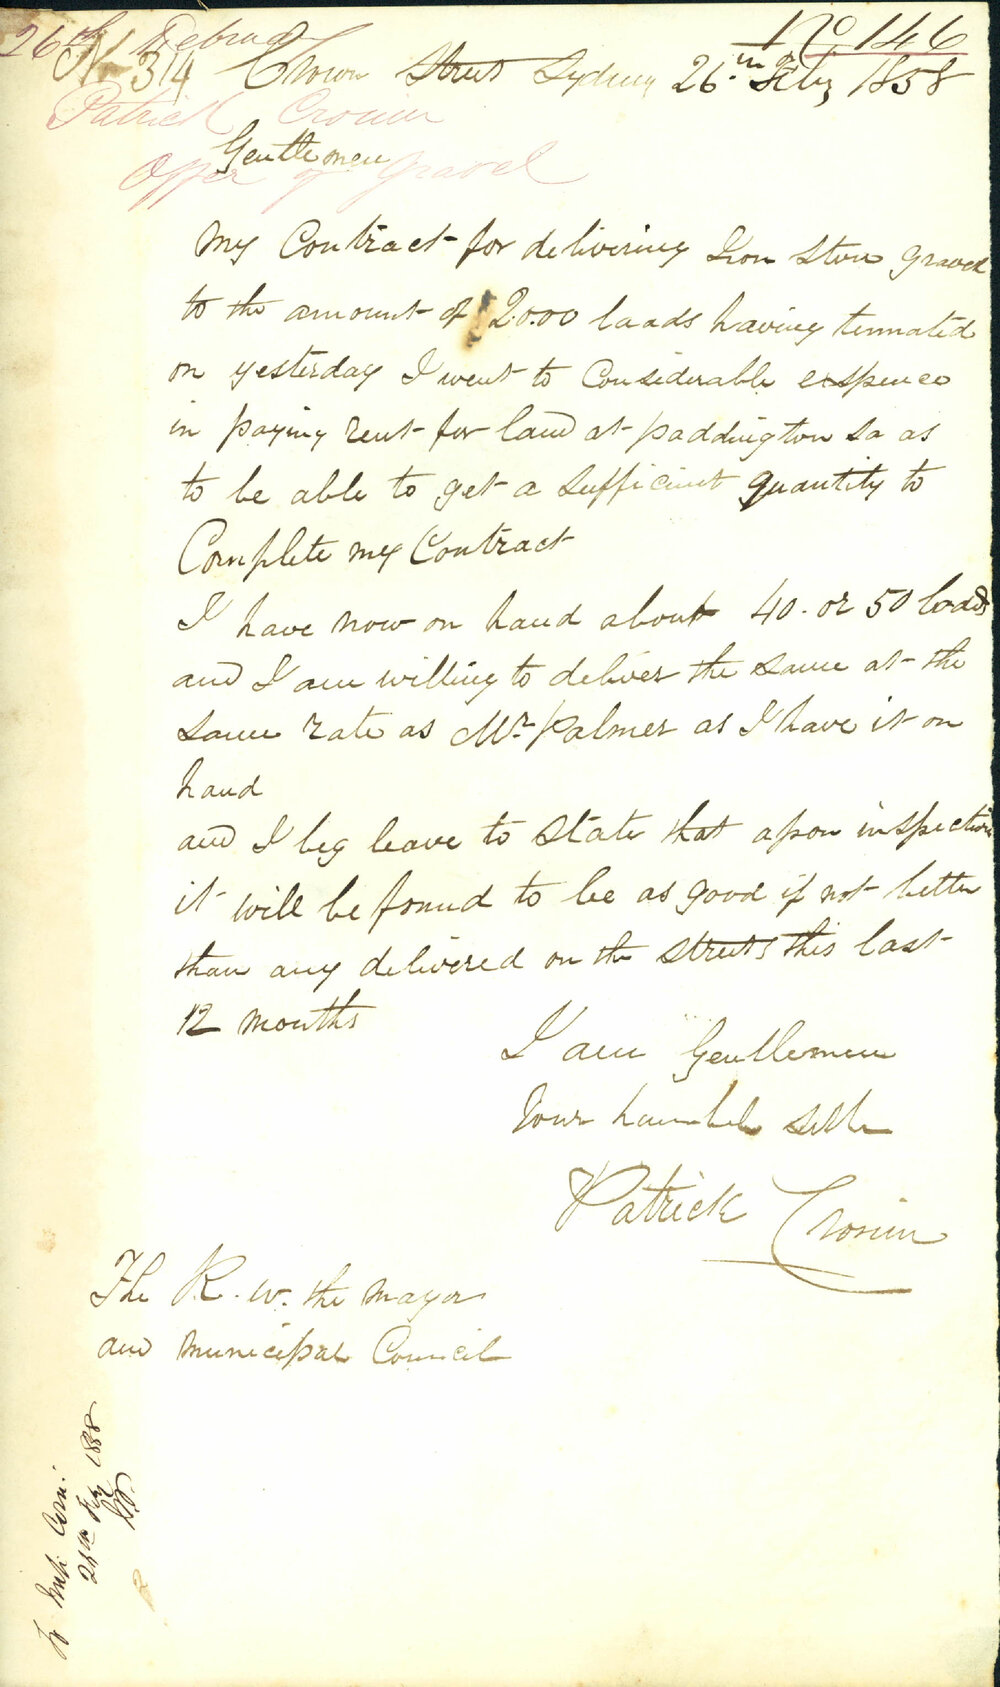 No 146
26th Februa
No 314 Crown Street Sydney 26th Feby 1858
Patrick Cronin
Gentlemen
Offer of Gravel
My Contract for delivering Iron Stone gravel
to the amount of 2000 loads having termated
on yesterday I went to Considerable expence
in paying rent for land at paddington so as
to be able to get a sufficient quantity to
Complete my Contract
I have now on hand about 40 or 50 loads
and I am willing to deliver the same at the
same rate as Mr Palmer as I have it on
hand
and I beg leave to State that apon inspection
it will be found to be as good if not better
than any delivered on the streets this last
12 months
I am Gentlemen
Your humbel
Patrick Cronin
The R. W. the Mayor
and Municipal Council
To Imp. Com.
26th Feby 1858